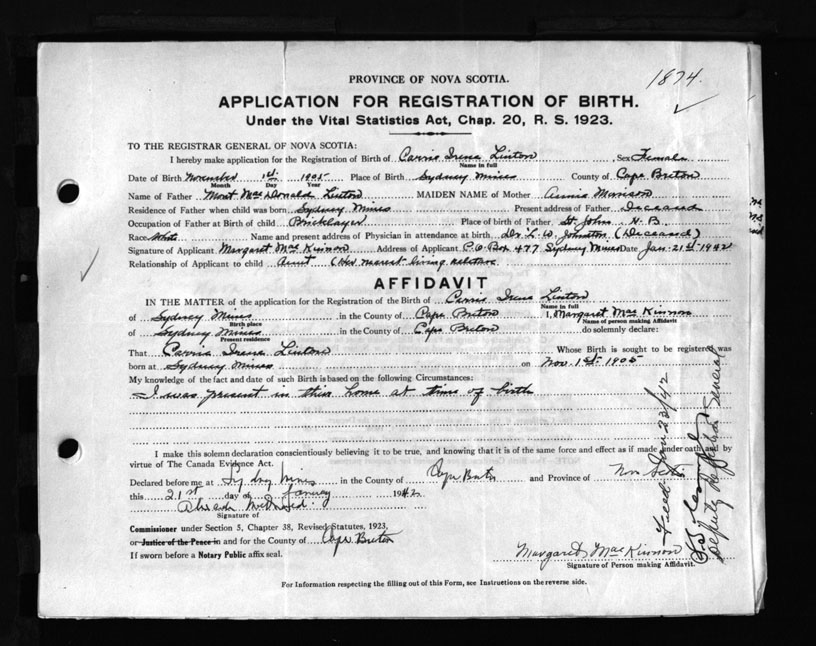 1874.
PROVINCE OF NOVA SCOTIA.
APPLICATION FOR REGISTRATION OF BIRTH.
Under the Vital Statistics Act, Chap. 20, R. S. 1923.
TO THE REGISTRAR GENERAL OF NOVA SCOTIA:
I hereby make application for the Registration of Birth of Carrie Irene Linton, Sex Female
Name in full
Date of Birth November 1st. 1905 Place of Birth Sydney Mines County of Cape Breton
Month Day Year
Name of Father Mont MacDonald Linton MAIDEN NAME of Mother Annie Morrison
Residence of Father when child was born Sydney Mines Present address of Father Deceased
Occupation of Father at Birth of child Bricklayer Place of birth of Father St. John N. B.
Race White Name and present address of Physician in attendance at birth Dr. L. W. Johnston (Deceased)
Signature of Applicant Margaret MacKinnon Address of Applicant P.O. Box 477 Sydney Mines Date Jan. 21st 1942
Relationship of Applicant to child Aunt (Her nearest living relation
AFFIDAVIT
IN THE MATTER of the application for the Registration of the Birth of Carrie Irene Linton
Name in full
of Sydney Mines in the County of Cape Breton I, Margaret MacKinnon
Birth place Name of person making Affidavit
of Sydney Mines in the County of Cape Breton do solemnly declare:
Present residence
That Carrie Irene Linton Whose Birth is sought to be registered was
born at Sydney Mines on Nov. 1st. 1905
My knowledge of the fact and date of such Birth is based on the following Circumstances:
I was present in their home at time of birth
I make this solemn declaration conscientiously believing it to be true, and knowing that it is of the same force and effect as if made under oath and by
virtue of The Canada Evidence Act.
Declared before me at Sydney Mines in the County of Cape Breton and Province of Nova Scotia
this 21st day of January 1942
Signature of
Commissioner under Section 5, Chapter 38, Revised Statutes, 1923,
or Justice of the Peace in and for the County of Cape Breton
If sworn before a Notary Public affix seal.
Margaret MacKinnon
Signature of Person making Affidavit.
For Information respecting the filling out of this Form, see Instructions on the reverse side.
Filed Jan 23/42
Deputy Registrar General